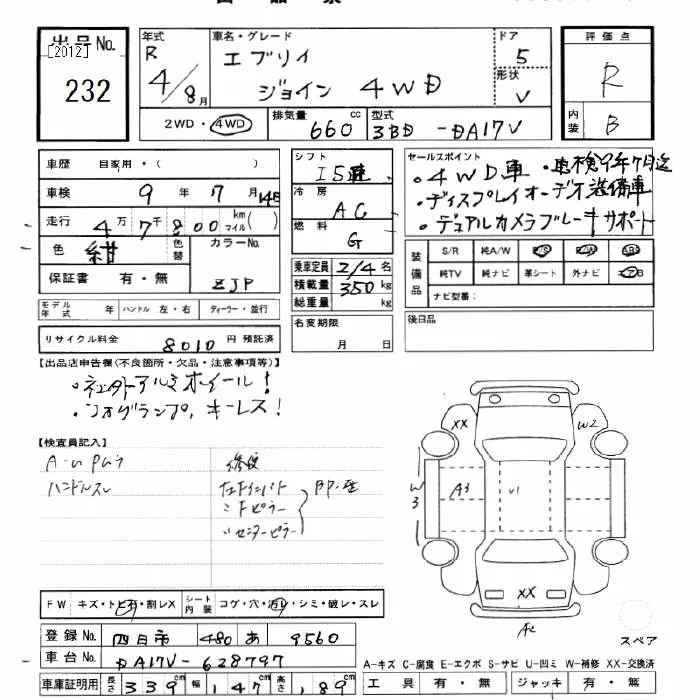 出品No.
[2012]
232
年式
R
4/8月
車名・グレード
エブリイ
ジョイン 4WD
ドア
5
形状
V
評価点
R
内装
B
2WD・4WD
排気量
660 cc
型式
3BD-DA17V
車歴 自家用・( )
車検 9年 7月 14日
走行 4万7千800 km マイル( )
色 紺 色替
カラーNo.
ZJP
保証書 有・無
モデル年式 年 ハンドル 左・右 ディーラー・並行
リサイクル料金 8010 円 預託済
シフト
I5速
冷房
AC
燃料
G
乗車定員 2/4 名
積載量 350 kg
総重量 kg
名変期限
月 日
セールスポイント
・4WD車 ・車検9年7月迄
・ディスプレイオーディオ装備車
・デュアルカメラブレーキサポート
装備品
S/R 純A/W P/S P/W ABS
純TV 純ナビ 革シート 外ナビ エアB
ナビ型番:
後日品
【出品店申告欄(不良箇所・欠品・注意事項等)】
・社外アルミホイール!
・フォグランプ, キーレス!
【検査員記入】
ハンドルスレ
修復
左Fインパト
〃Fピラー
〃センターピラー
XX
W2
W3
A3
U1
XX
A2
FW キズ・トビ石・割レX
シート内装 コゲ・穴・汚レ・シミ・破レ・スレ
スペア
登録No. 四日市 480 あ 9560
車台No. DA17V-628797
車庫証明用 長さ 339cm 幅 147cm 高さ 189cm
A-キズ C-腐食 E-エクボ S-サビ U-凹ミ W-補修 XX-交換済
工具 有・無 ジャッキ 有・無